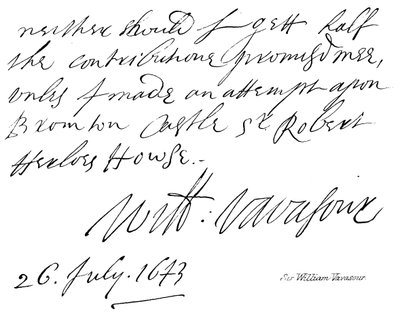 neither should I gett half
the contributione promisd mee,
unles I made an attempt apon
Bromton Castle Sr. Robert
Herloes Howse.-
Will: Vavasour
26. July. 1643
Sir William Vavasour